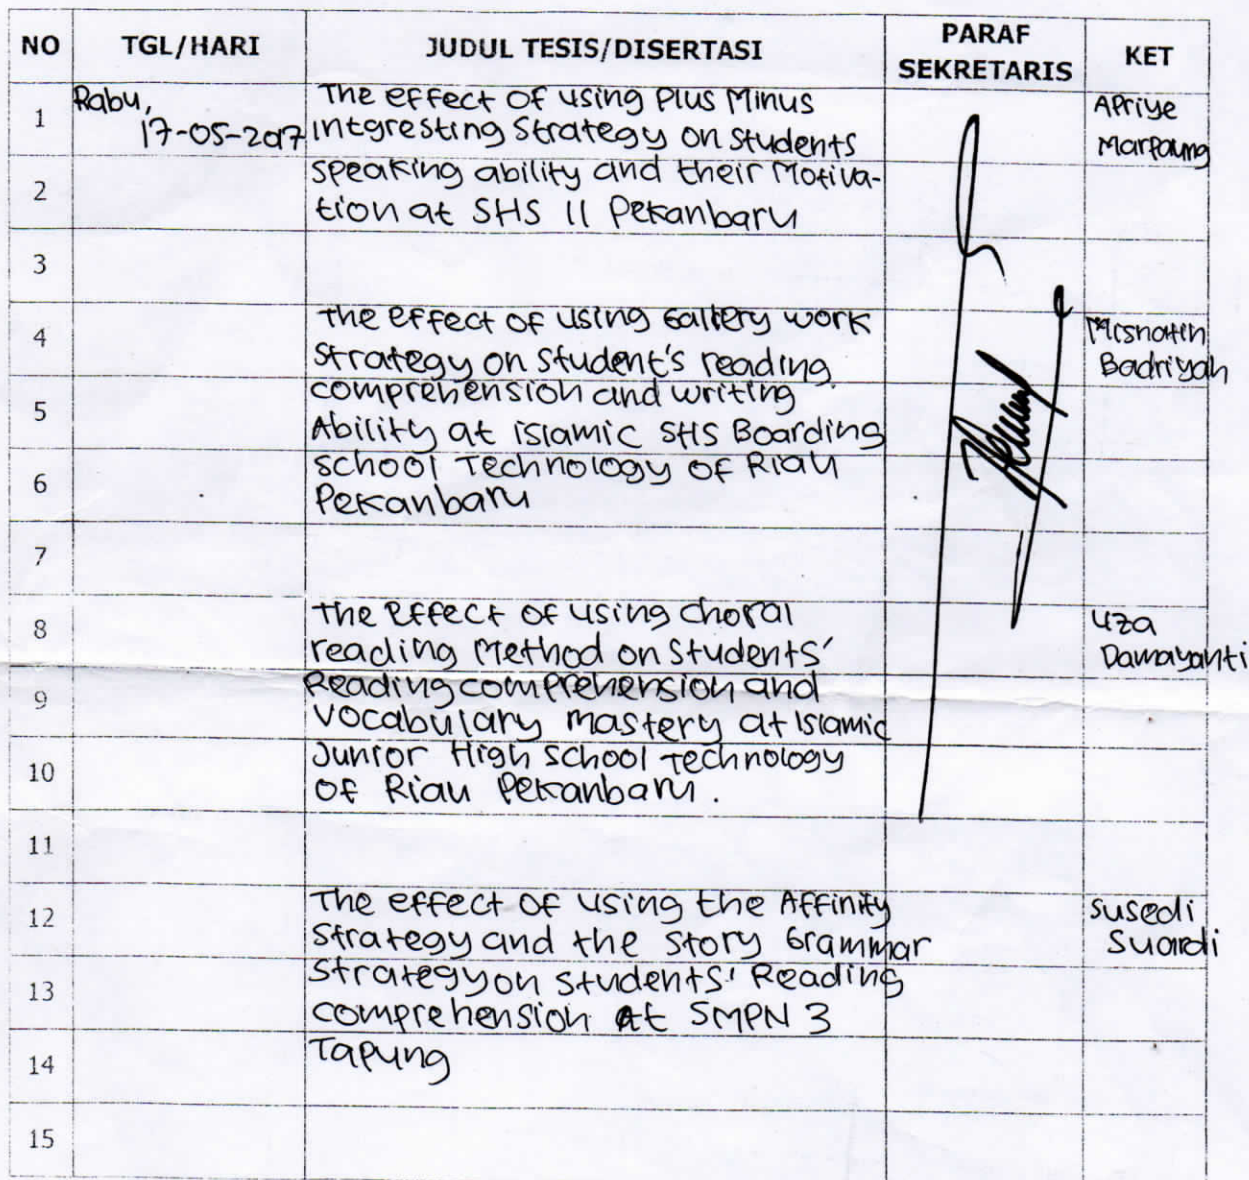 NO TGL/HARI JUDUL TESIS/DISERTASI PARAF SEKRETARIS KET
1 Rabu, The effect of using Plus Minus Apriye
17-05-2017 Intgresting Strategy on Students Marpaung
2 speaking ability and their Motiva-
tion at SHS 11 Pekanbaru
3
4 The effect of using Gallery work Misnatin
Strategy on Student's reading Badriyah
5 comprehension and writing
Ability at islamic SHS Boarding
6 school Technology of Riau
Pekanbaru
7
8 The Effect of using choral Uza
reading Method on Students' Damayanti
9 Reading comprehension and
vocabulary mastery at Islamic
10 Junior High school Technology
of Riau Pekanbaru.
11
12 The effect of using the Affinity Susedi
Strategy and the Story Grammar Suardi
13 Strategy on Students' Reading
comprehension At SMPN 3
14 Tapung
15